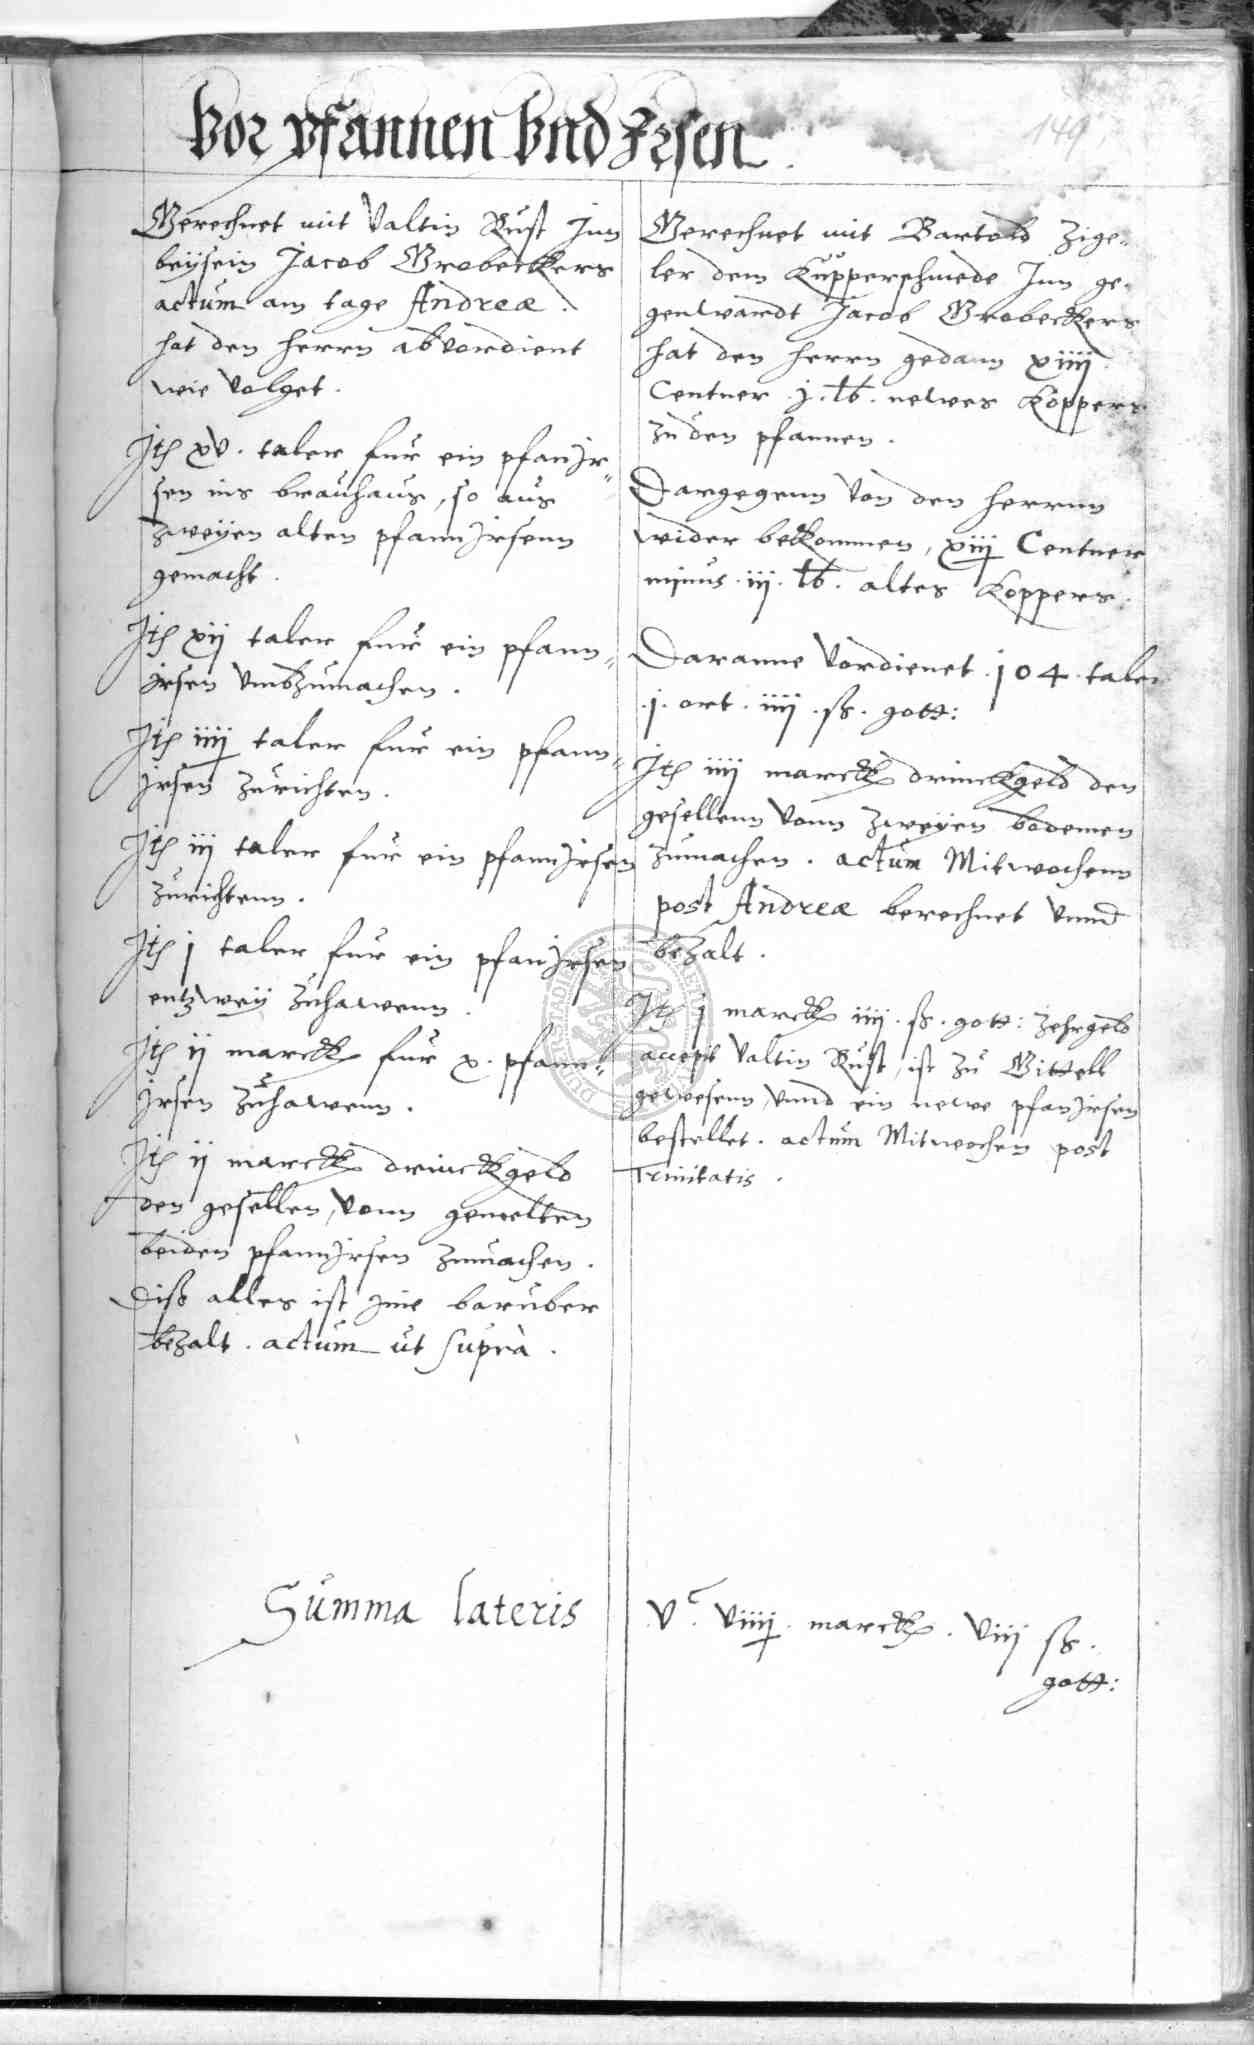 Vor pfannen Vnd Irsen
149
Gerechnet mit Valtin Rust Inn
beysein Jacob Grobeckers
actum am tage Andreæ.
hat den herrn abvordient
wie volget.
Itm xv. taler fur ein pfan Ir=
sen ins brauhaus, so aus
zweyen alten pfann Irsenn
gemacht.
Itm xij taler fur ein pfann=
irsen vmbzumachen.
Itm iiij taler fur ein pfann=
irsen zurichten.
Itm iij taler fur ein pfann Irsen
zurichtenn.
Itm j taler fur ein pfan Irsen
entzwey zuhawenn.
Itm ij marck fur x. pfann=
Irsen zuhawenn.
Itm ij marck drinckgeld
den gesellen, vonn gemelten
beiden pfann Irsen zumachen.
Diss alles ist ime baruber
bezalt. actum ut supra.
Gerechnet mit Bartold Zige=
ler dem Kupperschmede Inn ge=
genwardt Jacob Grobeckers
hat den herrn gedann xiiij
Centner .j. lb. newes Koppers
zu den pfannen.
Dargegenn von den herrnn
wider bekommen, xiij Centner
minus .iij. lb. altes Koppers.
Daranne vordienet .104. taler
.j. ort. iiij .ß. gott:
Itm iiij marck drinckgeld den
gesellenn vonn zweyen bodemen
zumachen. actum Mitwochenn
post Andreæ berechnet vnnd
bezalt.
Itm j marck iiij .ß. gott: zehrgeld
accepit Valtin Rust, ist zu Gittell
gewesenn, vnnd ein newe pfan Irsen
bestellet. actum Mitwochen post
Trinitatis.
Summa lateris
Vc. viiij. marck. viij ß.
gott: